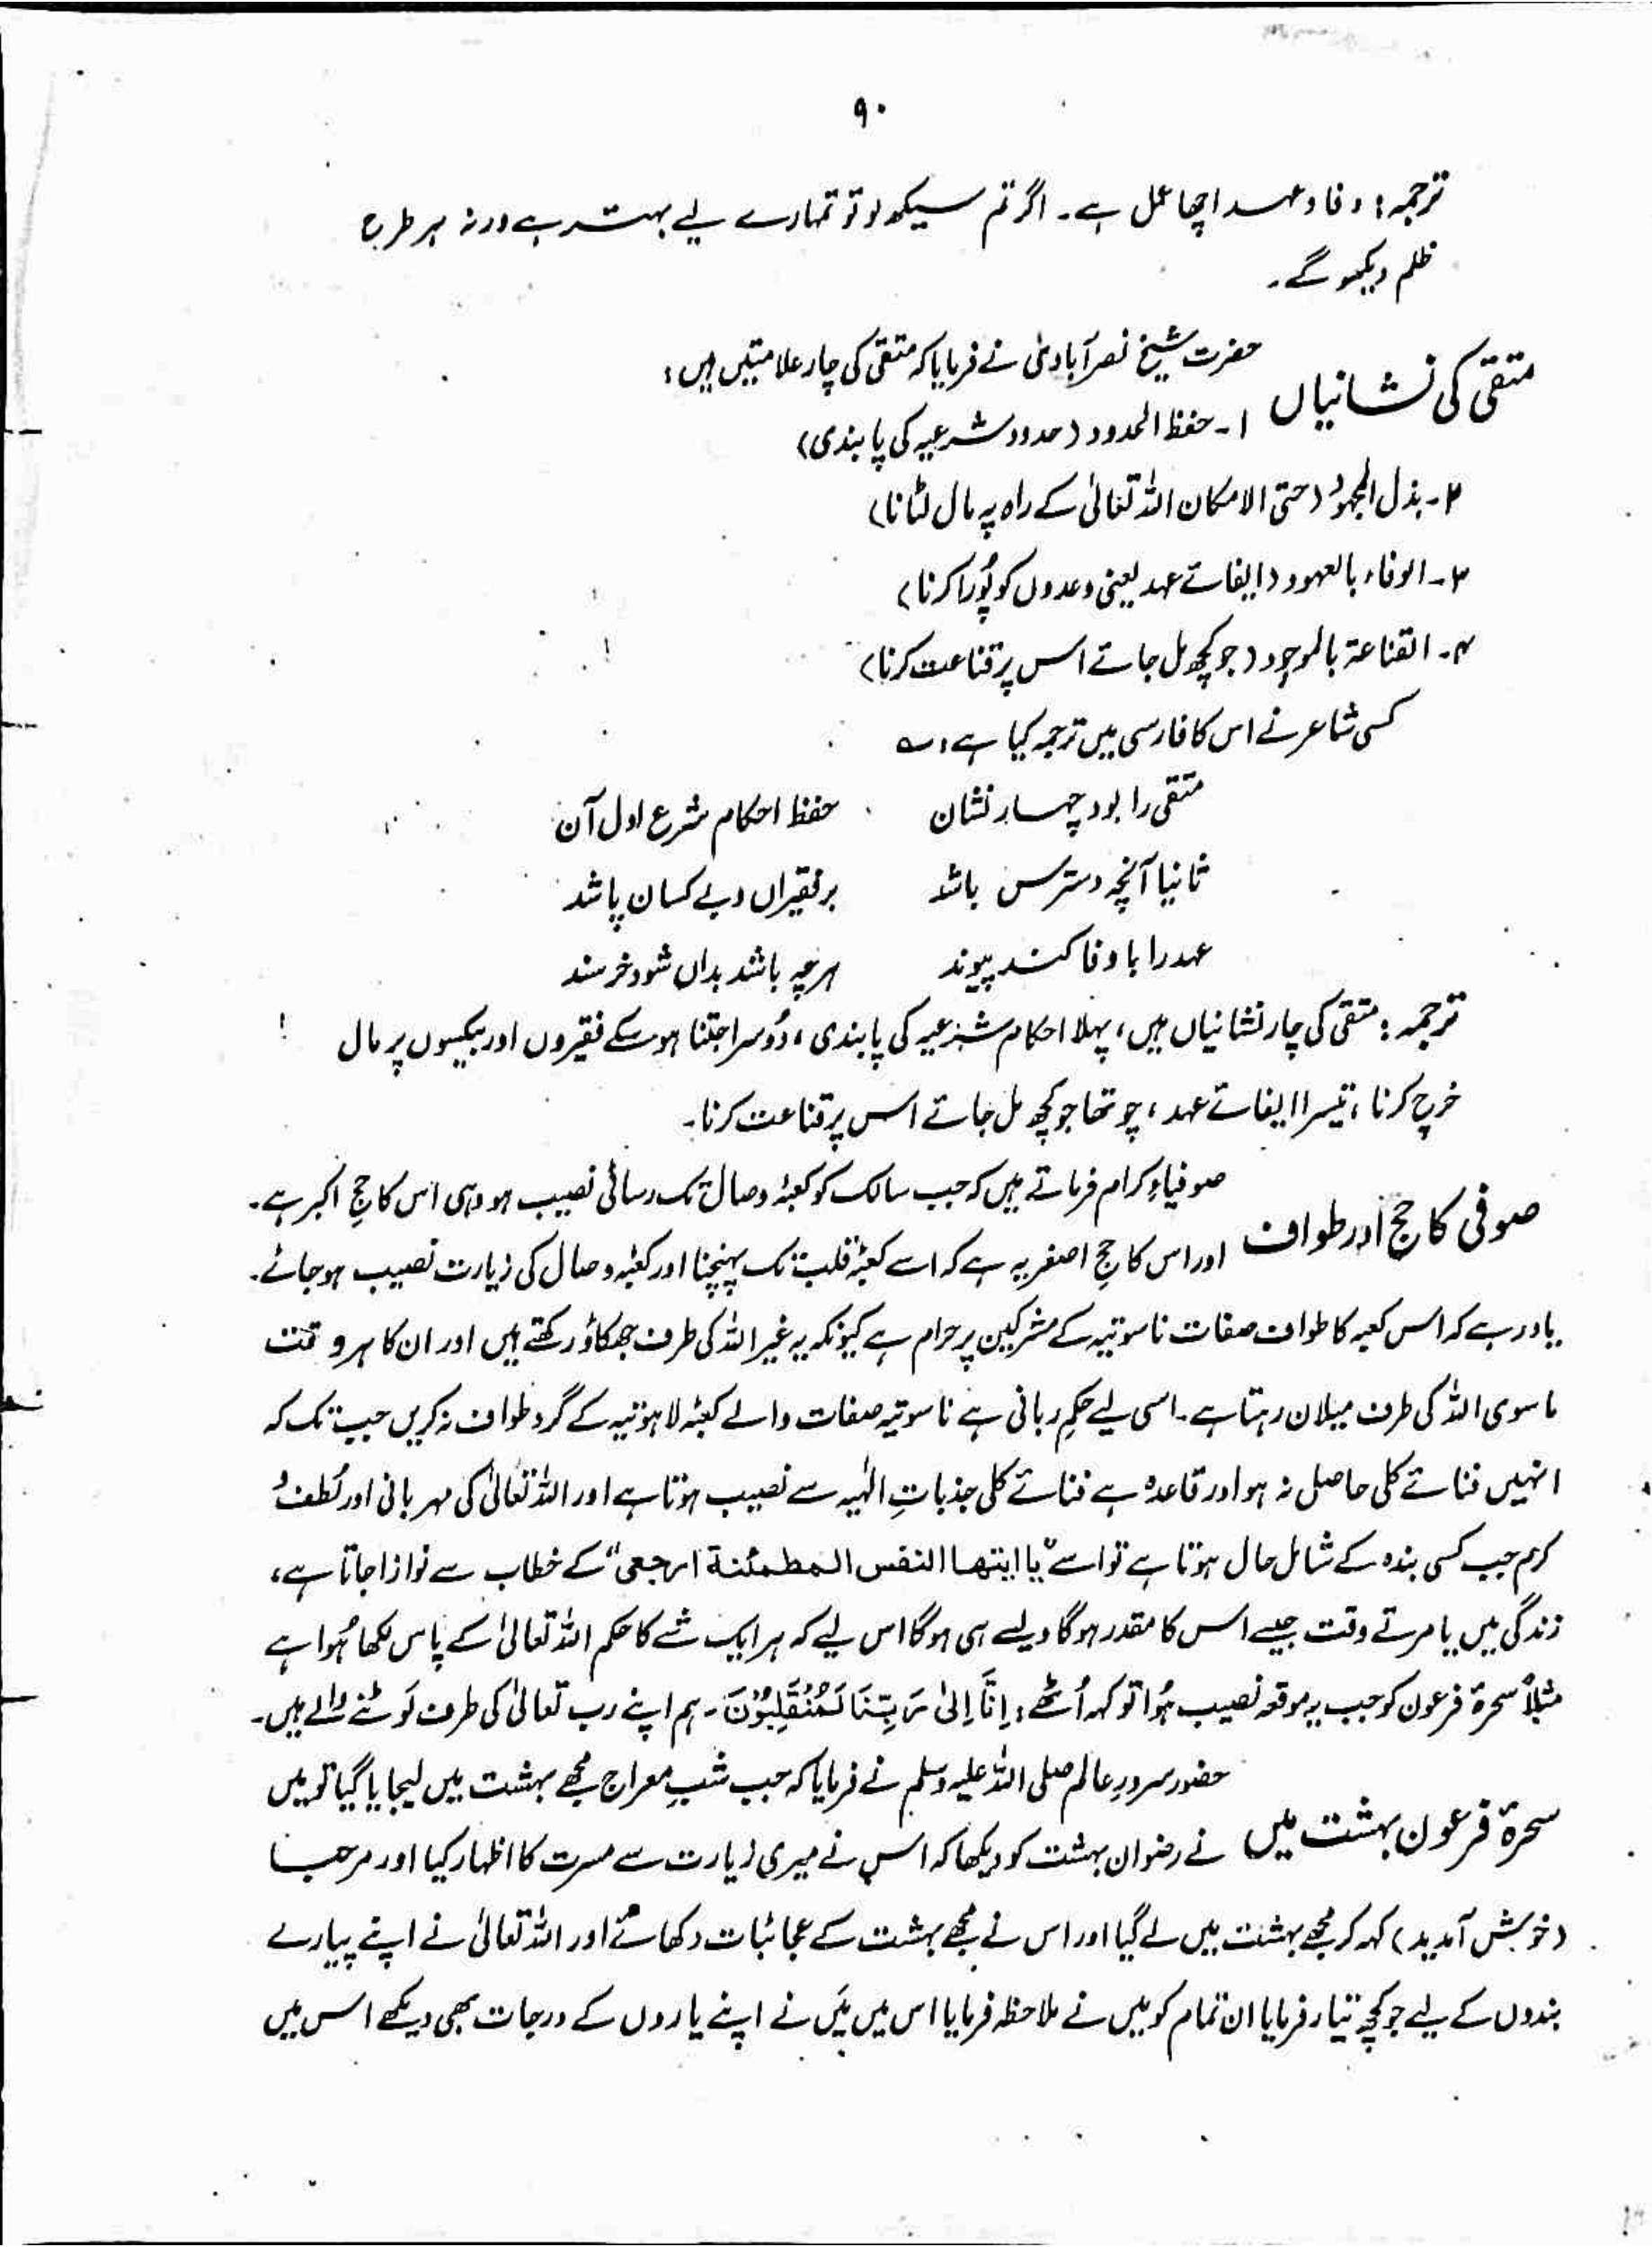 ۹۰
ترجمہ: وفا و عہد اچھا عمل ہے۔ اگر تم سیکھ لو تو تمہارے لیے بہتر ہے ورنہ ہر طرح
ظلم دیکھو گے۔
متقی کی نشانیاں
حضرت شیخ نصرآبادی نے فرمایا کہ متقی کی چار علامتیں ہیں:
۱۔ حفظ الحدود (حدود شرعیہ کی پابندی)
۲۔ بذل المجہود (حتی الامکان اللہ تعالیٰ کے راہ پہ مال لٹانا)
۳۔ الوفاء بالعہود (ایفائے عہد یعنی وعدوں کو پُورا کرنا)
۴۔ القناعۃ بالموجود (جو کچھ مل جائے اس پر قناعت کرنا)
کسی شاعر نے اس کا فارسی میں ترجمہ کیا ہے: ؎
متقی را بود چہار نشان حفظ احکام شرع اول آن
ثانیا آنچہ دسترس باشد بر فقیراں و بے کسان پاشد
عہد را با وفا کند پیوند ہر چہ باشد بداں شود خرسند
ترجمہ: متقی کی چار نشانیاں ہیں، پہلا احکام شرعیہ کی پابندی، دُوسرا جتنا ہو سکے فقیروں اور بیکسوں پر مال
خرچ کرنا، تیسرا ایفائے عہد، چوتھا جو کچھ مل جائے اس پر قناعت کرنا۔
صوفی کا حج اور طواف
صوفیاءِ کرام فرماتے ہیں کہ جب سالک کو کعبۂ وصال تک رسائی نصیب ہو وہی اس کا حجِ اکبر ہے۔
اور اس کا حجِ اصغر یہ ہے کہ اسے کعبۂ قلب تک پہنچنا اور کعبۂ وصال کی زیارت نصیب ہو جائے۔
یاد رہے کہ اس کعبہ کا طواف صفات ناسوتیہ کے مشرکین پر حرام ہے کیونکہ یہ غیر اللہ کی طرف جھکاؤ رکھتے ہیں اور ان کا ہر وقت
ماسوی اللہ کی طرف میلان رہتا ہے۔ اسی لیے حکمِ ربانی ہے ناسوتیہ صفات والے کعبۂ لاہوتیہ کے گرد طواف نہ کریں جب تک کہ
انہیں فنائے کلی حاصل نہ ہو اور قاعدہ ہے فنائے کلی جذباتِ الٰہیہ سے نصیب ہوتا ہے اور اللہ تعالیٰ کی مہربانی اور لُطف و
کرم جب کسی بندہ کے شامل حال ہوتا ہے تو اسے "یا ایتھا النفس المطمئنة ارجعی" کے خطاب سے نوازا جاتا ہے،
زندگی میں یا مرتے وقت جیسے اس کا مقدر ہوگا ویسے ہی ہوگا اس لیے کہ ہر ایک شے کا حکم اللہ تعالیٰ کے پاس لکھا ہُوا ہے
مثلاً سحرۃ فرعون کو جب یہ موقعہ نصیب ہُوا تو کہہ اُٹھے: اِنَّا اِلیٰ رَبِّنَا لَمُنْقَلِبُوْنَ۔ ہم اپنے رب تعالیٰ کی طرف لَوٹنے والے ہیں۔
سحرۃ فرعون بہشت میں
حضور سرورِ عالم صلی اللہ علیہ وسلم نے فرمایا کہ جب شبِ معراج مجھے بہشت میں لیجایا گیا تو میں
نے رضوان بہشت کو دیکھا کہ اس نے میری زیارت سے مسرت کا اظہار کیا اور مرحبا
(خوش آمدید) کہہ کر مجھے بہشت میں لے گیا اور اس نے مجھے بہشت کے عجائبات دکھائے اور اللہ تعالیٰ نے اپنے پیارے
بندوں کے لیے جو کچھ تیار فرمایا ان تمام کو میں نے ملاحظہ فرمایا اس میں مَیں نے اپنے یاروں کے درجات بھی دیکھے اس میں